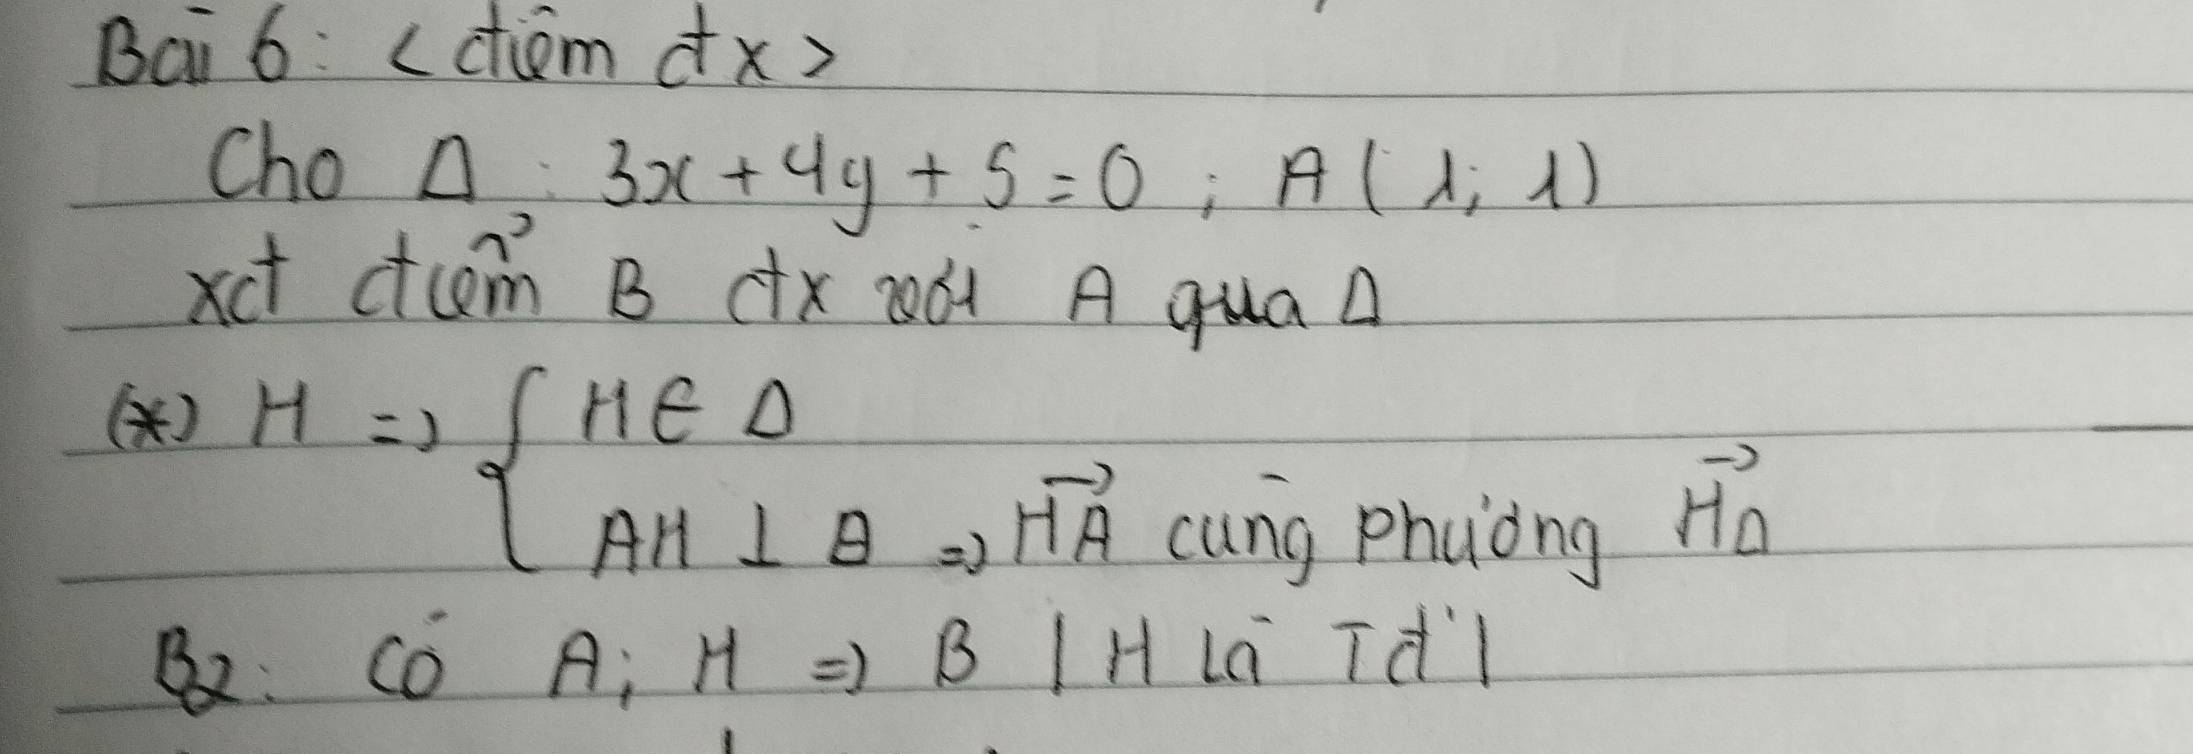 Bài 6: < điểm đx >
Cho Δ : 3x + 4y + 5 = 0 ; A ( 1; 1)
xđ điểm B đx với A qua Δ
(*) H => { H ∈ Δ
AH ⊥ Δ => \overrightarrow{HA} cùng phương \overrightarrow{HΔ}
B2: Có A; H => B | H là Tđ' |